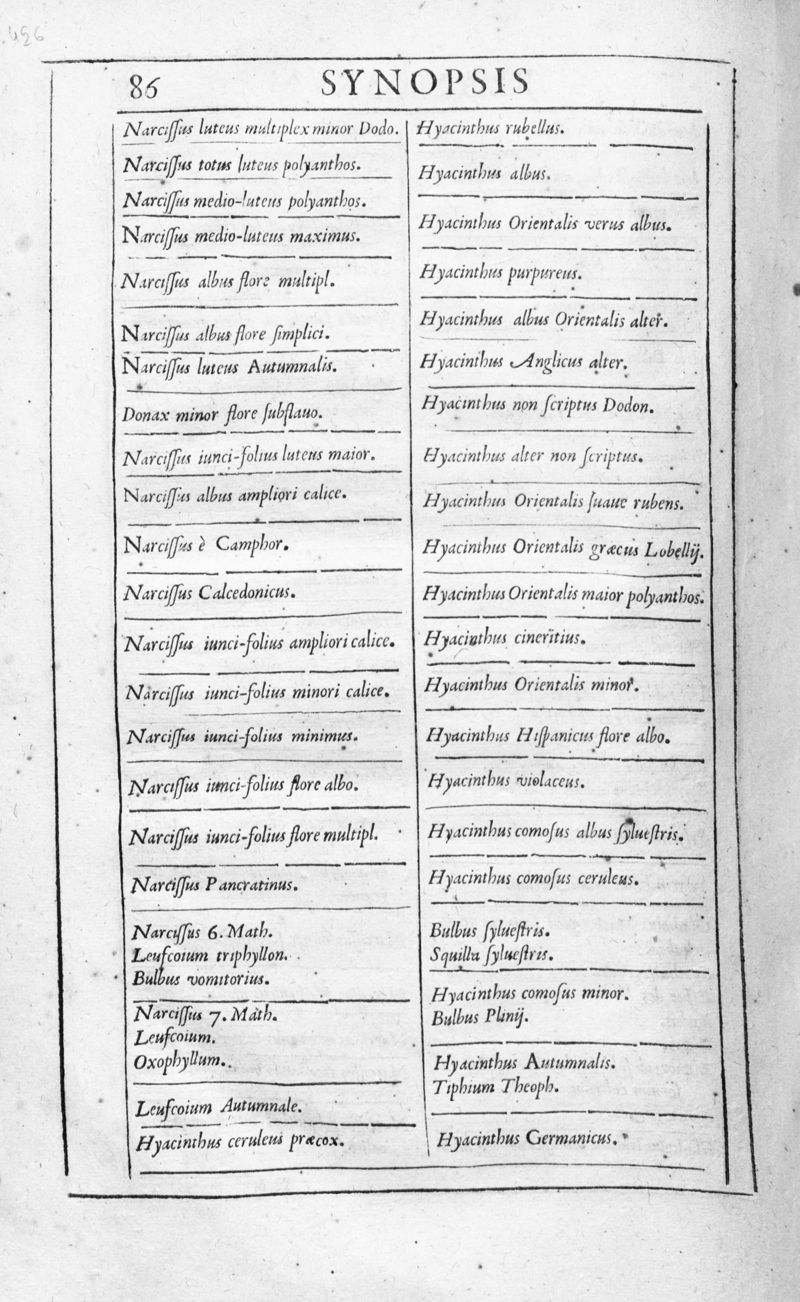 496
86
SYNOPSIS
Narcissus luteus multiplex minor Dodo.
Narcissus totus luteus polyanthos.
Narcissus medio-luteus polyanthos.
Narcissus medio-luteus maximus.
Narcissus albus flore multipl.
Narcissus albus flore simplici.
Narcissus luteus Autumnalis.
Donax minor flore subflauo.
Narcissus iunci-folius luteus maior.
Narcissus albus ampliori calice.
Narcissus è Camphor.
Narcissus Calcedonicus.
Narcissus iunci-folius ampliori calice.
Narcissus iunci-folius minori calice.
Narcissus iunci-folius minimus.
Narcissus iunci-folius flore albo.
Narcissus iunci-folius flore multipl.
Narcissus Pancratinus.
Narcissus 6. Math.
Leufcoium triphyllon.
Bulbus vomitorius.
Narcissus 7. Math.
Leufcoium.
Oxophyllum.
Leufcoium Autumnale.
Hyacinthus ceruleus præcox.
Hyacinthus rubellus.
Hyacinthus albus.
Hyacinthus Orientalis verus albus.
Hyacinthus purpureus.
Hyacinthus albus Orientalis alter.
Hyacinthus Anglicus alter.
Hyacinthus non scriptus Dodon.
Hyacinthus alter non scriptus.
Hyacinthus Orientalis suaue rubens.
Hyacinthus Orientalis græcus Lobellij.
Hyacinthus Orientalis maior polyanthos.
Hyacinthus cineritius.
Hyacinthus Orientalis minor.
Hyacinthus Hispanicus flore albo.
Hyacinthus violaceus.
Hyacinthus comosus albus syluestris.
Hyacinthus comosus ceruleus.
Bulbus syluestris.
Squilla syluestris.
Hyacinthus comosus minor.
Bulbus Plinij.
Hyacinthus Autumnalis.
Tiphium Theoph.
Hyacinthus Germanicus.